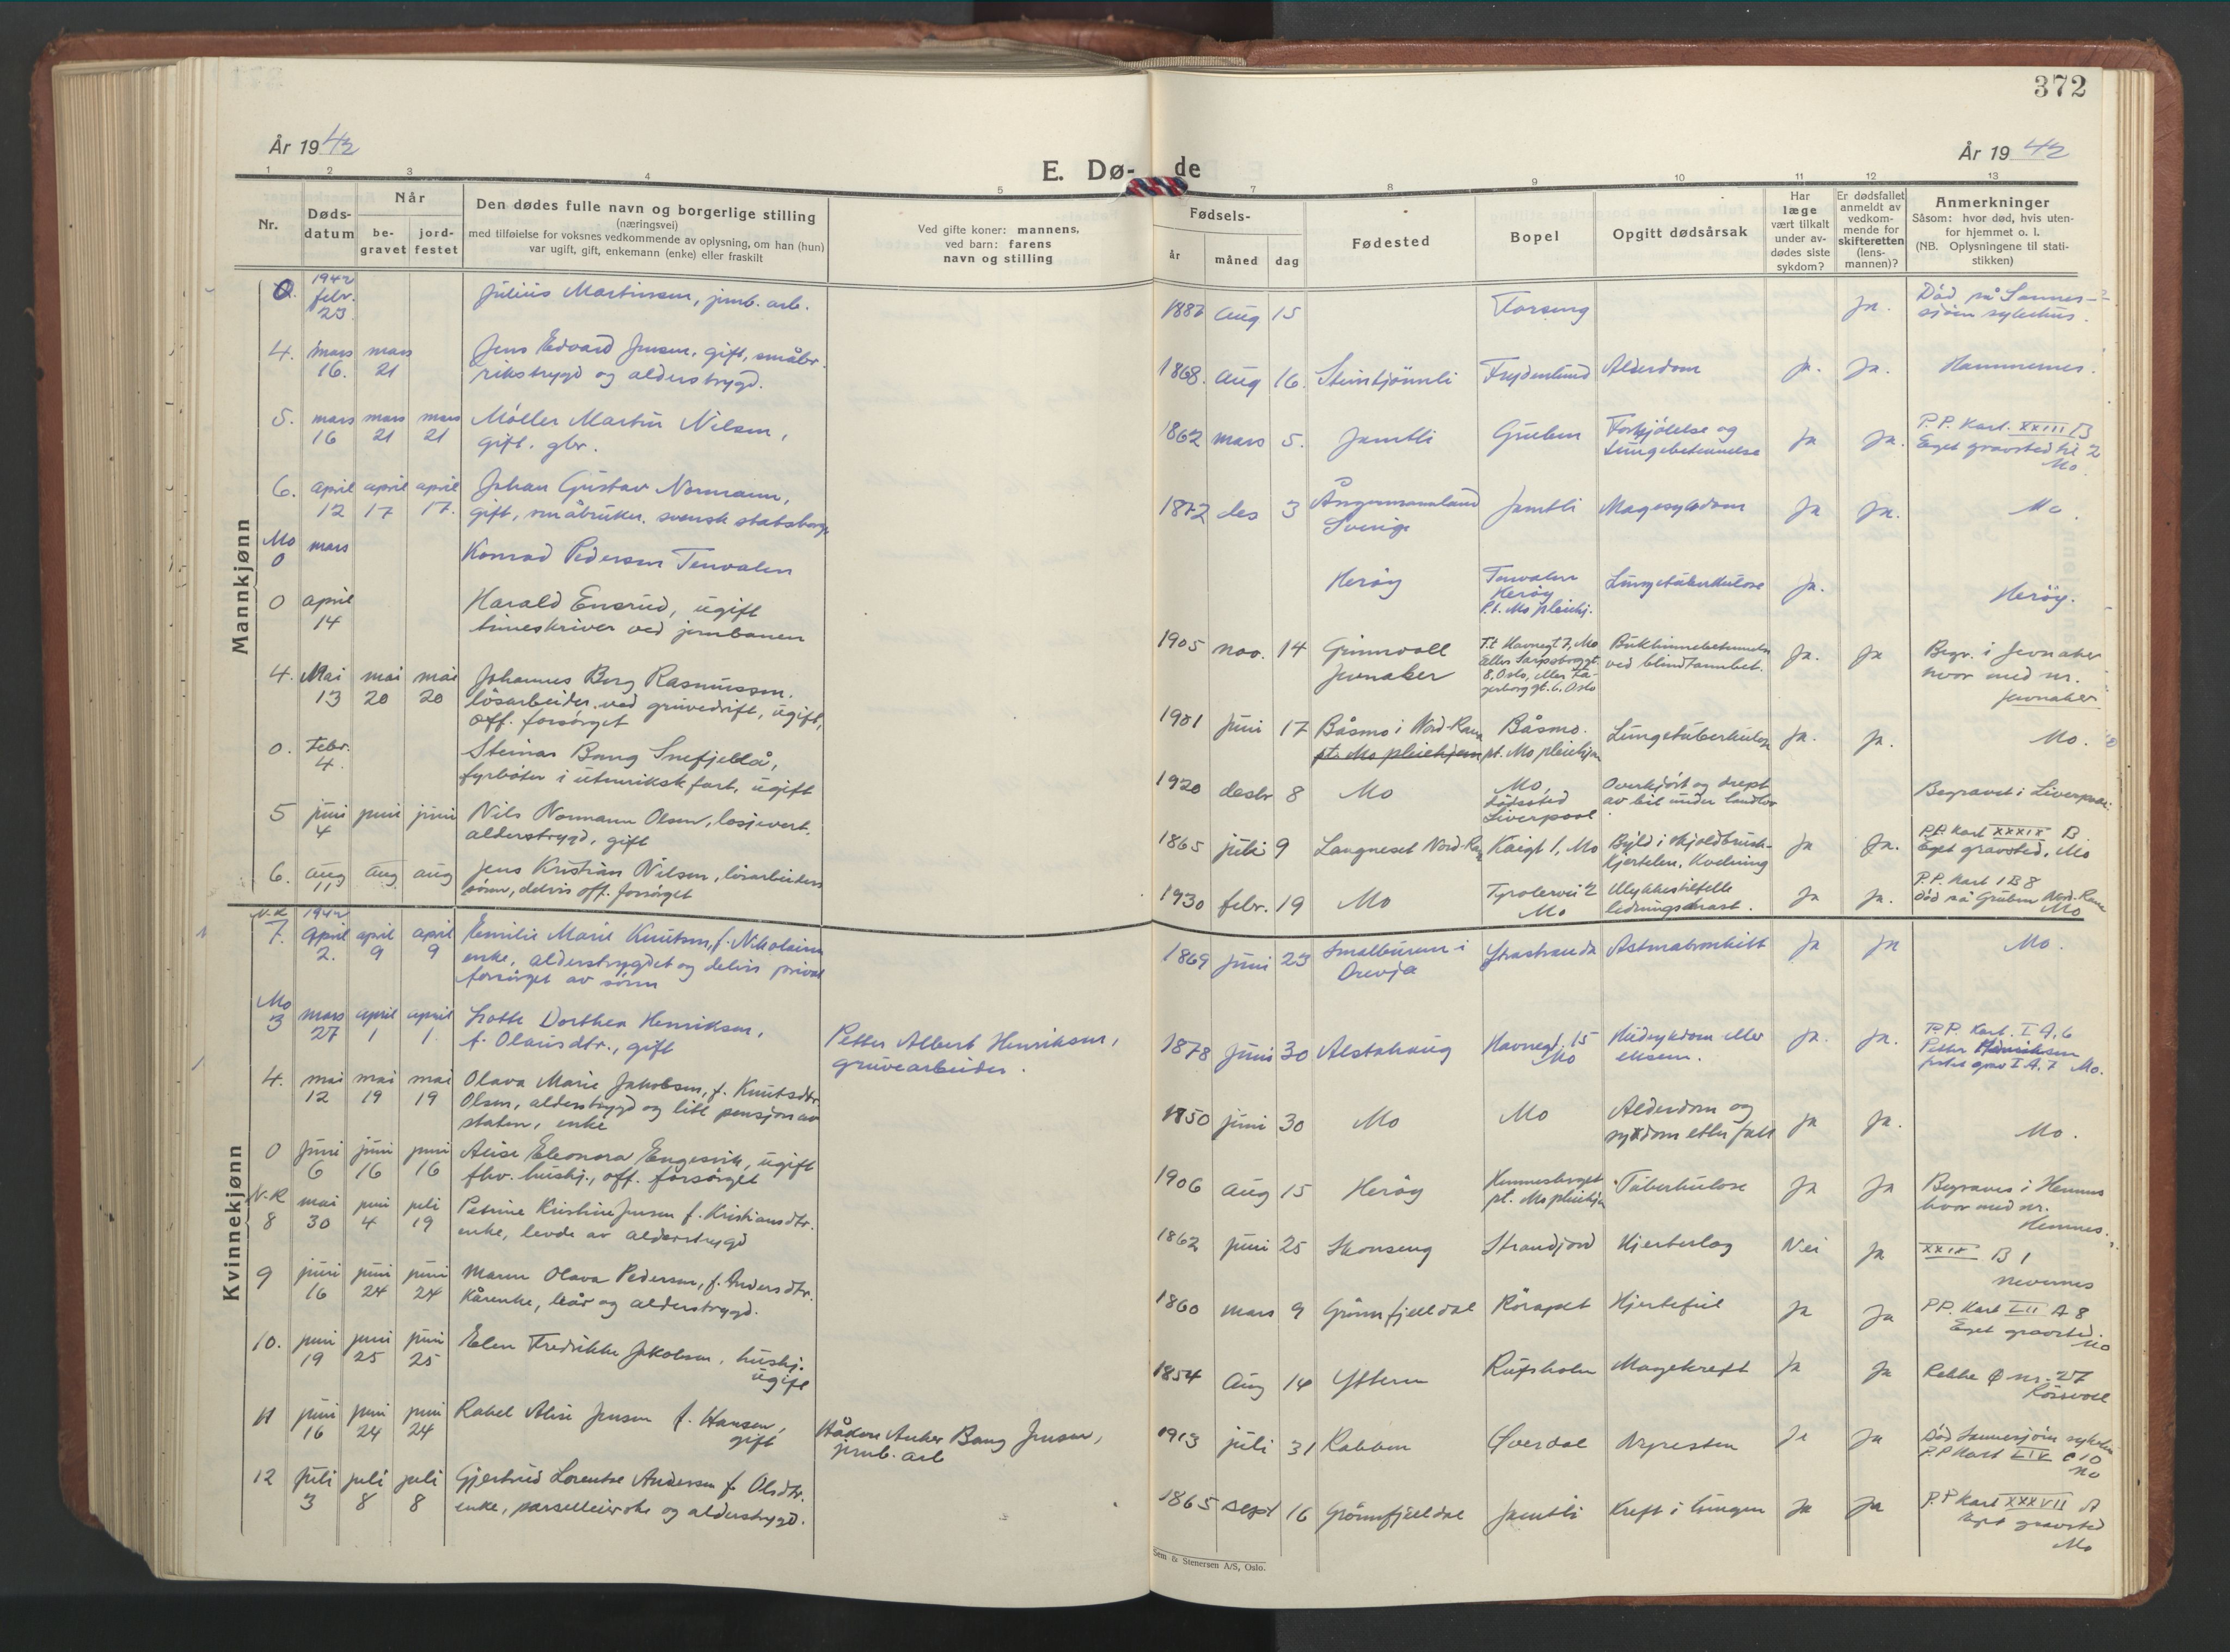 372
År 1942
År 1942
E. Dø- de
1 2 3 4 5 7 8 9 10 11 12 13
Nr.
Døds-
datum
Når
be-
gravet
jord-
festet
Den dødes fulle navn og borgerlige stilling
(næringsvei)
med tilføielse for voksnes vedkommende av oplysning, om han (hun)
var ugift, gift, enkemann (enke) eller fraskilt
Ved gifte koner: mannens,
ved barn: farens
navn og stilling
Fødsels-
år måned dag
Fødested
Bopel
Opgitt dødsårsak
Har
læge
vært tilkalt
under av-
dødes siste
sykdom?
Er dødsfallet
anmeldt av
vedkom-
mende for
skifteretten
(lens-
mannen)?
Anmerkninger
Såsom: hvor død, hvis uten-
for hjemmet o. l.
(NB. Oplysningene til stati-
stikken)
Mannkjønn
0. 1942 febr. 23 Julius Martinsen, jernb. arb.
Aug 15 Forseng Ja. Død på Sannes-
sjøen sykehus.
4. mars 16. mars 21 Jens Edvard Jensen, gift, småbr.
rikstrygd og alderstrygd.
1868. Aug 16. Steintjønnli Frydenlund Alderdom Ja. Ja. Hammernes.
5. mars 16 mars 21 mars 21 Møller Martin Nilsen,
gift. gbr.
1862 mars 5. Jamtli Gruben Forkjølelse og
Lungebetennelse Ja Ja. P.P. Kart. XXIII B
Eget gravsted til 2
Mo.
6. april 12 april 17 april 17. Johan Gustav Normann,
gift, småbruker. svensk statsborg
1872 des 3 Ångermannland
Sverige Jamtli Magesykdom Ja Ja. Mo.
Mo
0 mars Konrad Pedersen Tenvalen
Herøy Tenvalen
Herøy
P.t. Mo pleiehj. Lungetuberkulose Ja. Herøy.
0 april 14 Harald Ensrud, ugift
timeskriver ved jernbanen
1905 nov. 14 Grinvoll
Jevnaker T.t Havnegt 7, Mo
Eller Sarpsborggt.
8, Oslo, eller Fa-
gerborggt. 6. Oslo Bukhinnebetennelse
ved blindtarmbet. Ja. Ja Begr. i Jevnaker
hvor med nr.
Jevnaker
4. Mai 13 mai 20 mai 20 Johannes Berg Rasmussen.
løsarbeider. ved gruvedrift, ugift,
off. forsørget
1901 Juni 17 Båsmo i Nord-Rana
pt. Mo pleiehjem Båsmo.
pt. Mo pleiehjem Lungetuberkulose Ja. Ja. Mo.
0. Febr. 4. Steinar Bang Snefjellå,
fyrbøter i utenriksk fart, ugift
1920 desbr 8 Mo Mo,
dødssted
Liverpool Overkjørt og drept
av bil under landlov Begravet i Liverpool.
5 juni 4 juni juni Nils Normann Olsen, losjevert.
alderstrygd, gift
1865 juli 9 Langneset Nord-Rana Kaigt 1, Mo Byld i skjoldbrusk-
kjertelen. Kvelning Ja Ja. P.P. Kart XXXIX B.
Eget gravsted, Mo
6. aug 11 aug aug Jens Kristian Nilsen, løsarbeiders
sønn, delvis off. forsørget
1930 febr. 19 Mo Tyrolervei 2
Mo Ulykkestilfelle
ledningsmast. Ja Ja. P.P. Kart 1 B 8
død på Gruben Nord-Rana
Mo
Kvinnekjønn
N.R
7. 1942 april 2. april 9 april 9 Emilie Marie Knutsen, f. Nikolaisen
enke, alderstrygdet og delvis privat
forsørget av sønn
1869 Juni 23 Smalburen i
Drevja Ytrastranda Astmabronkitt Ja Ja Mo.
Mo
3 mars 27 april 1 april 1 Lotte Dorthea Henriksen,
f. Olausdtr., gift
Petter Albert Henriksen,
gruvearbeider.
1878 Juni 30 Alstahaug Havnegt. 15
Mo Hudsykdom eller
eksem. Ja. Ja. P.P. Kart. I A, 6
Petter Henriksen
festet grav I A. 7 Mo.
4. mai 12 mai 19 mai 19 Olava Marie Jakobsen, f. Knutsdtr.
Olsen, alderstrygd og litt pensjon av
staten, enke
1850 juni 30 Mo Mo Alderdom og
sykdom etter fall Ja Ja. Mo.
0 Juni 6 juni 16 juni 16 Alise Eleonora Engesvik, ugift
fhv. hushj., off. forsørget
1906 Aug 15 Herøy Hemnesberget
pt. Mo pleiehjem Tuberkulose Ja Ja Begraves i Hemnes
hvor med nr.
Hemnes.
N-R
8 mai 30 juni 4 juli 19 Petrine Kristine Jensen f. Kristiansdtr.
enke, levde av alderstrygd
1862 juni 25 Skonseng Strandjord Hjerteslag Nei Ja XXIX B 1
Nevernes
9 juni 16 juni 24 juni 24 Maren Olava Pedersen, f. Andersdtr.
Kårenke, kår og alderstrygd.
1860 mars 9 Grønnfjelldal Røraplet Hjertefeil Ja Ja P.P. Kart LII A 8
Eget gravsted.
Mo
10. juni 19 juni 25 juni 25 Elen Fredrikke Jakobsen, hushj.
ugift
1854 Aug 14 Ytteren Rufsholm Magekreft Ja Ja Rekke Ø nr. 27
Røssvoll
11 juni 16 juni 24 juni 24 Rakel Alise Jensen f. Hansen,
gift
Håkon Anker Bang Jensen,
jernb. arb
1913 juli 31 Rabben Øverdal Nyresten Ja Ja Død Sannesjøen sykehus
P.P Kart LIX C 10
Mo
12 Juli 3 juli 8 juli 8 Gjertrud Lorentse Andersen f. Olsdtr.
enke, parselleierske og alderstrygd.
1865 sept 16 Grønnfjelldal Jamtli Kreft i lungen Ja Ja P.P Kart XXXVII A
Eget gravsted
Mo
Sem & Stenersen A/S, Oslo.